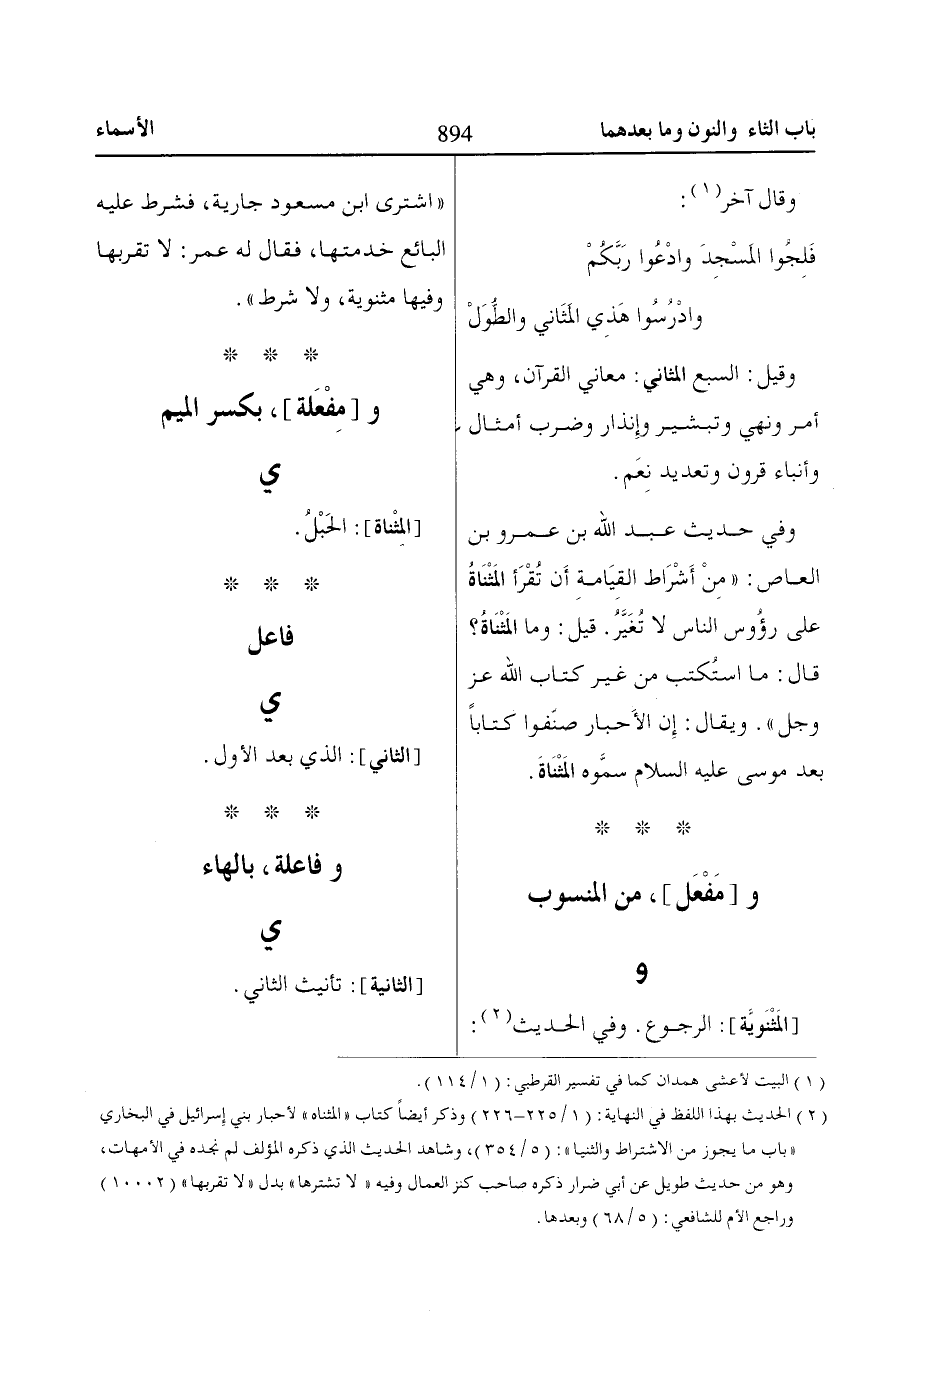 باب الثاء والنون وما بعدهما 894 الأسماء
وقال آخر(١):
فَلِجُوا المَسْجِدَ وادْعُوا رَبَّكُمْ
وادْرُسُوا هَذِي المَثَاني والطُّوَلْ
وقيل: السبع المثاني: معاني القرآن، وهي
أمر ونهي وتبشير وإنذار وضرب أمثال
وأنباء قرون وتعديد نِعَم.
وفي حديث عبد الله بن عمرو بن
العاص: «مِنْ أَشْرَاط القيامة أن تُقْرَأ المَثْنَاةُ
على رؤُوس الناس لا تُغَيَّرُ. قيل: وما المَثْنَاةُ؟
قال: ما استُكتب من غير كتاب الله عز
وجل». ويقال: إِن الأَحبار صنّفوا كتاباً
بعد موسى عليه السلام سمَّوه المَثْنَاةَ.
* * *
و [مَفْعَل]، من المنسوب
و
[المَثْنَوِيَّة]: الرجوع. وفي الحديث(٢):
«اشترى ابن مسعود جارية، فشرط عليه
البائع خدمتها، فقال له عمر: لا تقربها
وفيها مثنوية، ولا شرط».
* * *
و [مِفْعَلة]، بكسر الميم
ي
[المِثْناة]: الحَبْلُ.
* * *
فاعل
ي
[الثاني]: الذي بعد الأول.
* * *
و فاعلة، بالهاء
ي
[الثانية]: تأنيث الثاني.
(١) البيت لأعشى همدان كما في تفسير القرطبي: (١/١١٤).
(٢) الحديث بهذا اللفظ في النهاية: (١/٢٢٥–٢٢٦) وذكر أيضاً كتاب «المثناه» لأحبار بني إسرائيل في البخاري
«باب ما يجوز من الاشتراط والثنيا»: (٥/٣٥٤)، وشاهد الحديث الذي ذكره المؤلف لم نجده في الأمهات،
وهو من حديث طويل عن أبي ضرار ذكره صاحب كنز العمال وفيه «لا تشترها» بدل «لا تقربها» (١٠٠٠٢)
وراجع الأم للشافعي: (٥/٦٨) وبعدها.